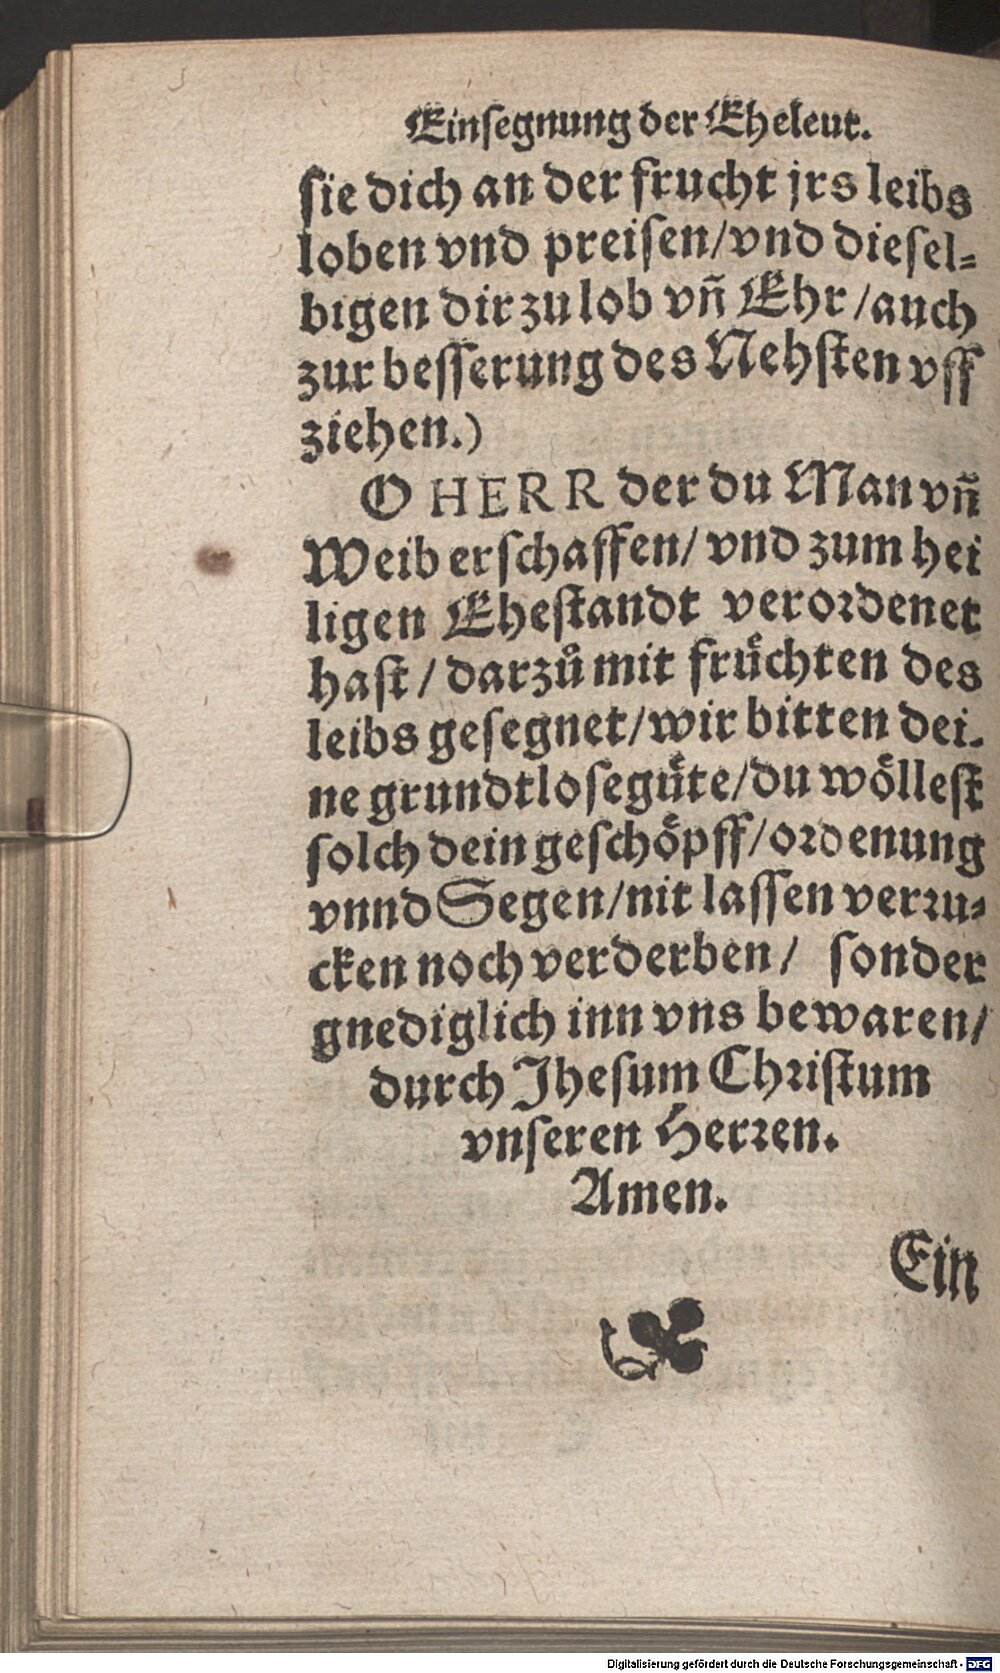 Einſegnung der Eheleut.
ſie dich an der frucht jrs leibs
loben vnd preiſen/vnd dieſel⸗
bigen dir zu lob vñ Ehr/auch
zur beſſerung des Nehſten vff
ziehen.)
O HERR der du Man vñ
Weib erſchaffen/ vnd zum hei
ligen Eheſtandt verordenet
haſt/ darzů mit frůchten des
leibs geſegnet/wir bitten dei.
ne grundtloſe gůte/du wölleſt
ſolch dein geſchöpff/ordenung
vnnd Segen/nit laſſen verru⸗
cken noch verderben/ ſonder
gnediglich inn vns bewaren/
durch Jheſum Chriſtum
vnſeren Herren.
Amen.
Ein
Digitalisierung gefördert durch die Deutsche Forschungsgemeinschaft - DFG